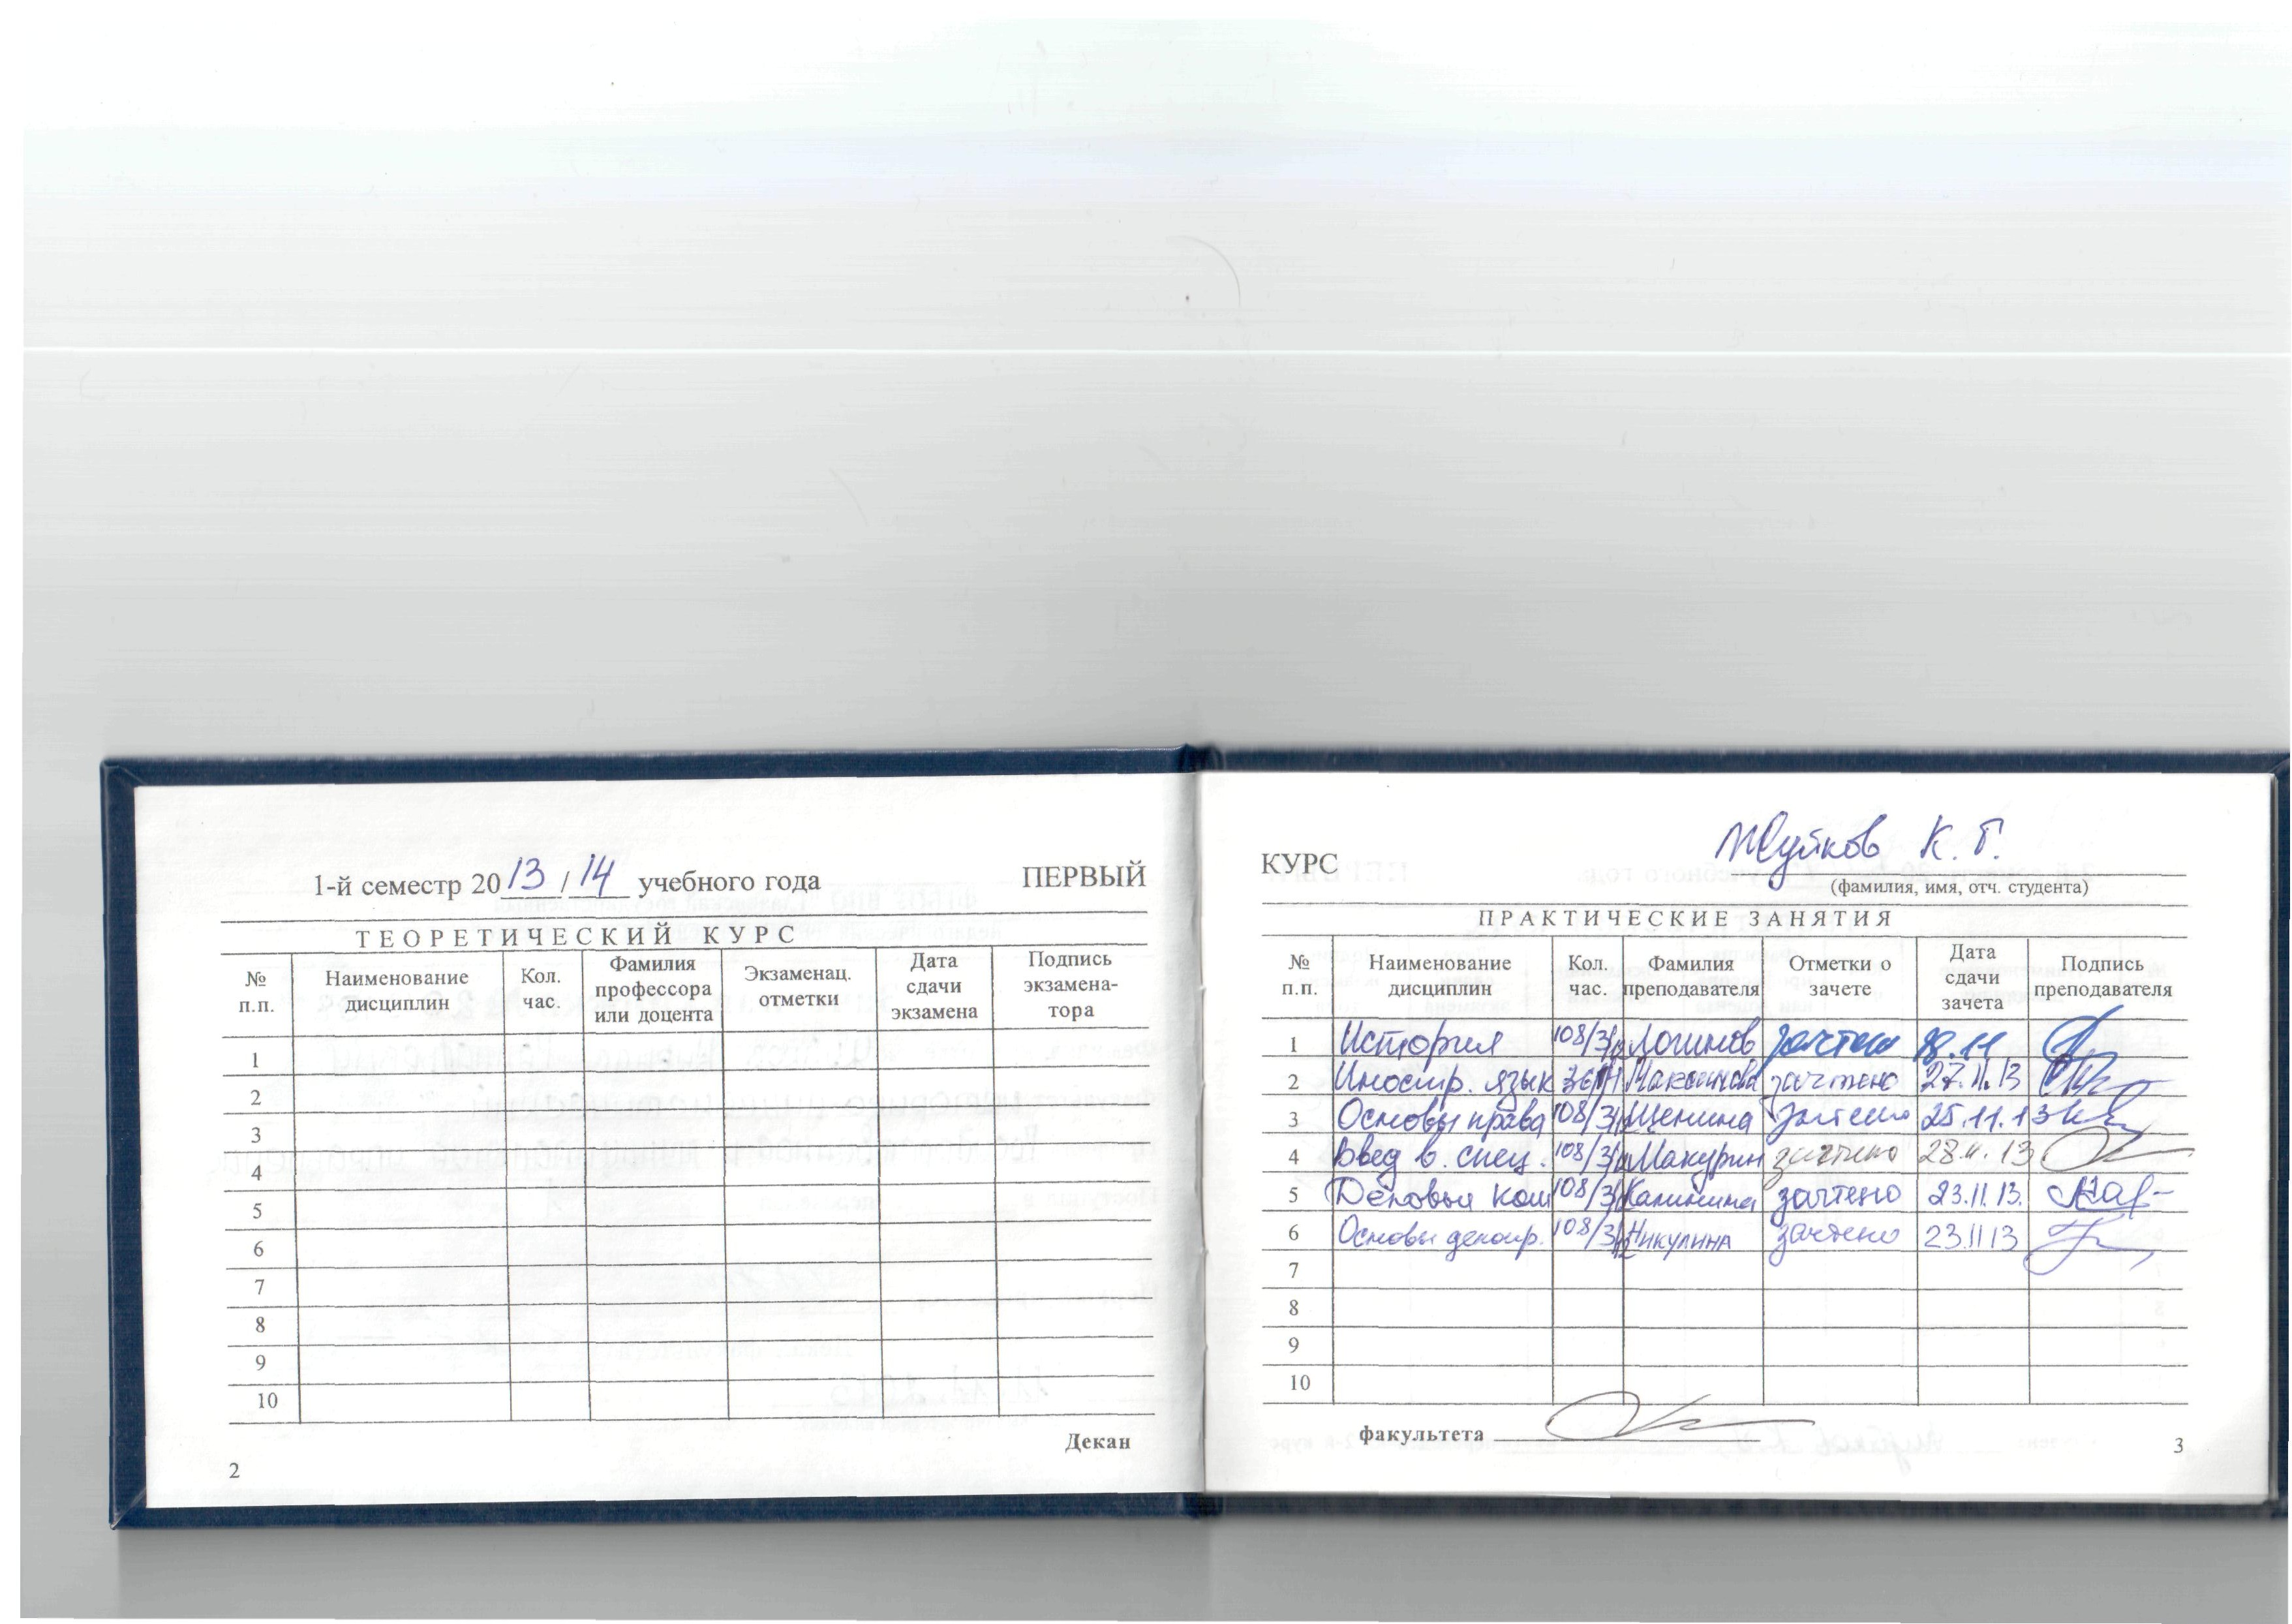 1-й семестр 2013/14 учебного года ПЕРВЫЙ
ТЕОРЕТИЧЕСКИЙ КУРС
№ п.п. Наименование дисциплин Кол. час. Фамилия профессора или доцента Экзаменац. отметки Дата сдачи экзамена Подпись экзамена-тора
1
2
3
4
5
6
7
8
9
10
Декан
2
КУРС Жуйков К. Г.
(фамилия, имя, отч. студента)
ПРАКТИЧЕСКИЕ ЗАНЯТИЯ
№ п.п. Наименование дисциплин Кол. час. Фамилия преподавателя Отметки о зачете Дата сдачи зачета Подпись преподавателя
1 История 108/3 Логинов зачтено
2 Иностр. язык 36/1 Максимова зачтено 27.11.13
3 Основы права 108/3 зачтено 25.11.13
4 Введ в. спец. 108/3 Макурин зачтено 28.11.13
5 Деловые ком 108/3 Калинина зачтено 23.11.13.
6 Основы делопр. 108/3 Никулина зачтено 23.11 13
7
8
9
10
факультета
3